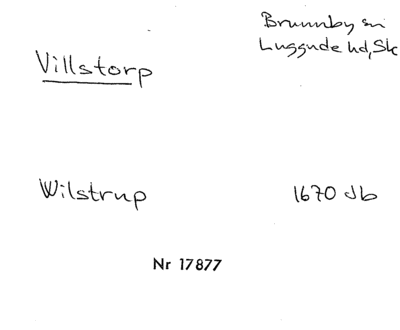 Brunnby sn
Luggude hd, Sk
Villstorp
Wilstrup 1670 Jb
Nr 17877